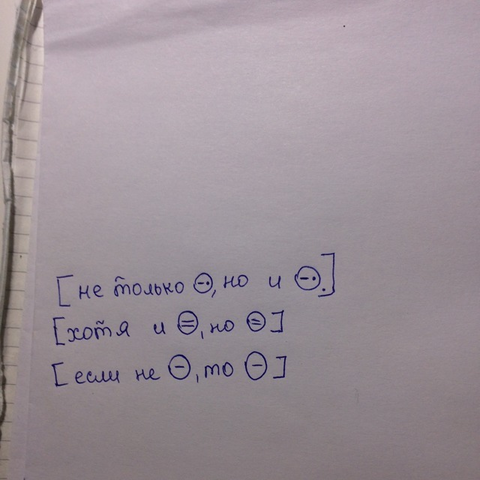 [не только ⊖, но и ⊖.]
[хотя и ⊜, но ⊜]
[если не ⊖, то ⊖]